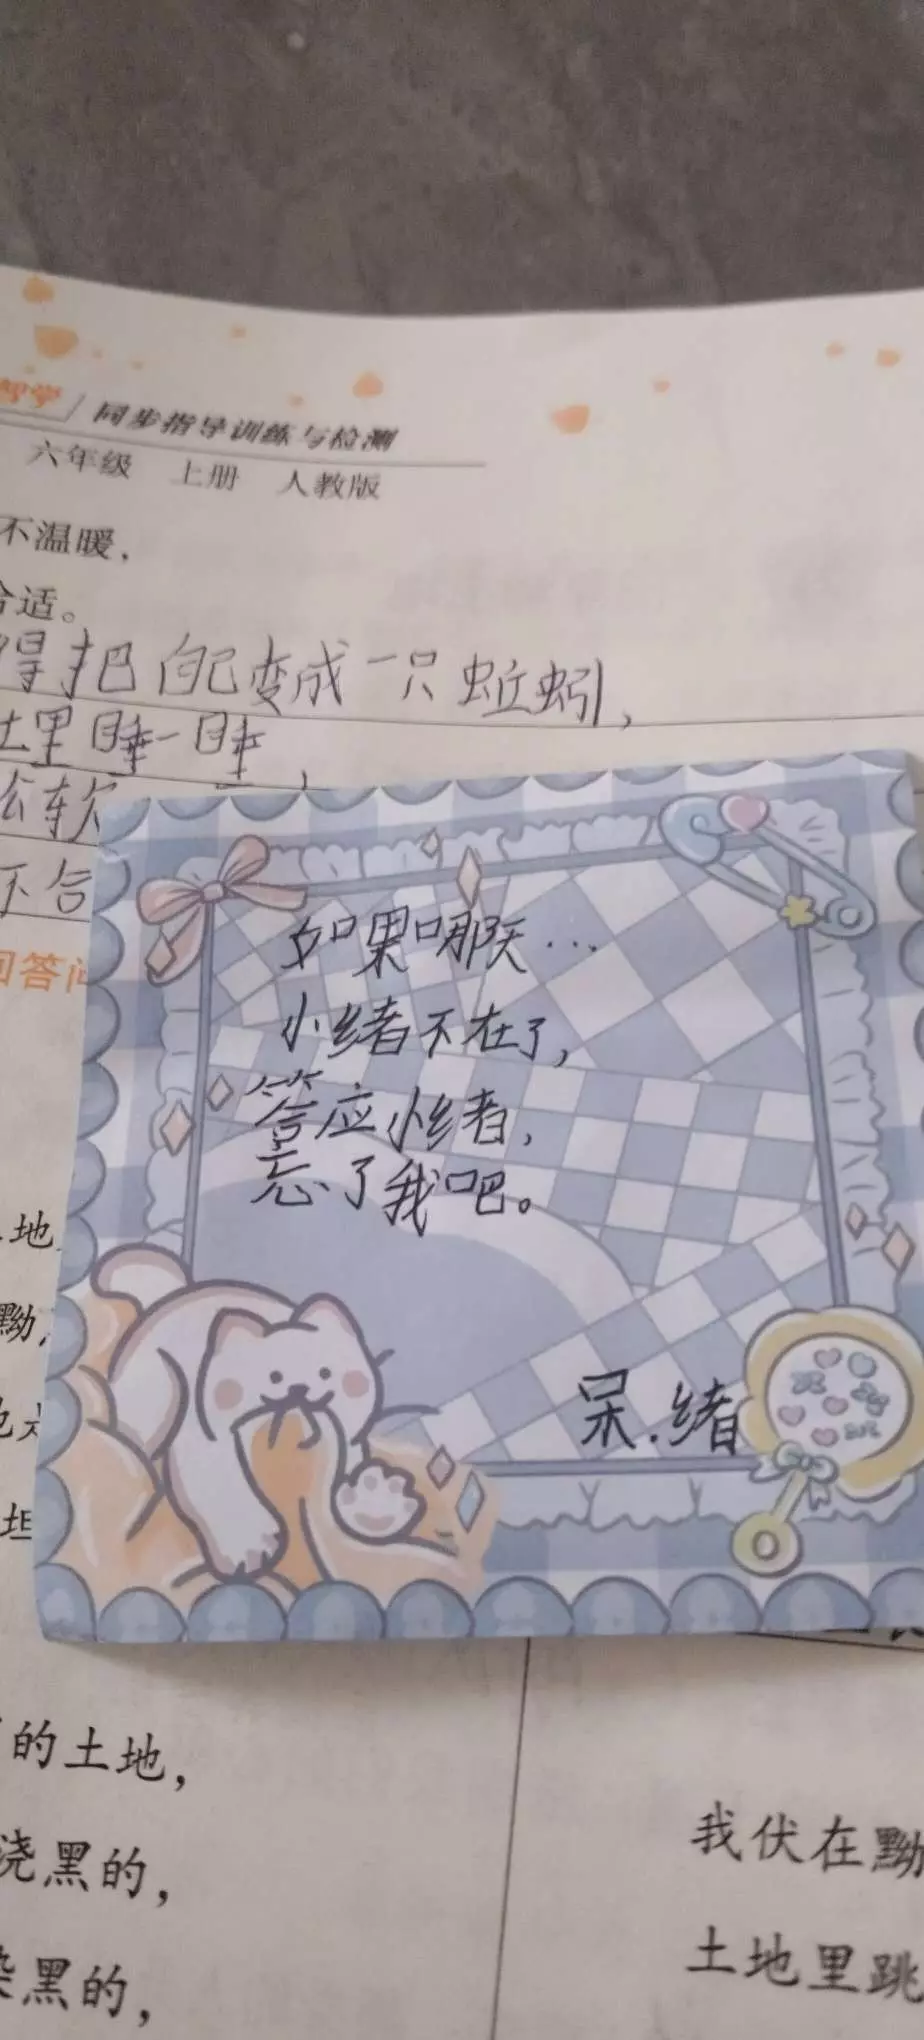 同步指导训练与检测
六年级 上册 人教版
不温暖，
合适。
得把自己变成一只蚯蚓，
土里睡一睡，
松软
不合
回答问
如果哪天…
小绪不在了，
答应小绪，
忘了我吧。
呆.绪
地
黝，
地
坦
的土地，
浇黑的，
染黑的，
我伏在黝
土地里跳